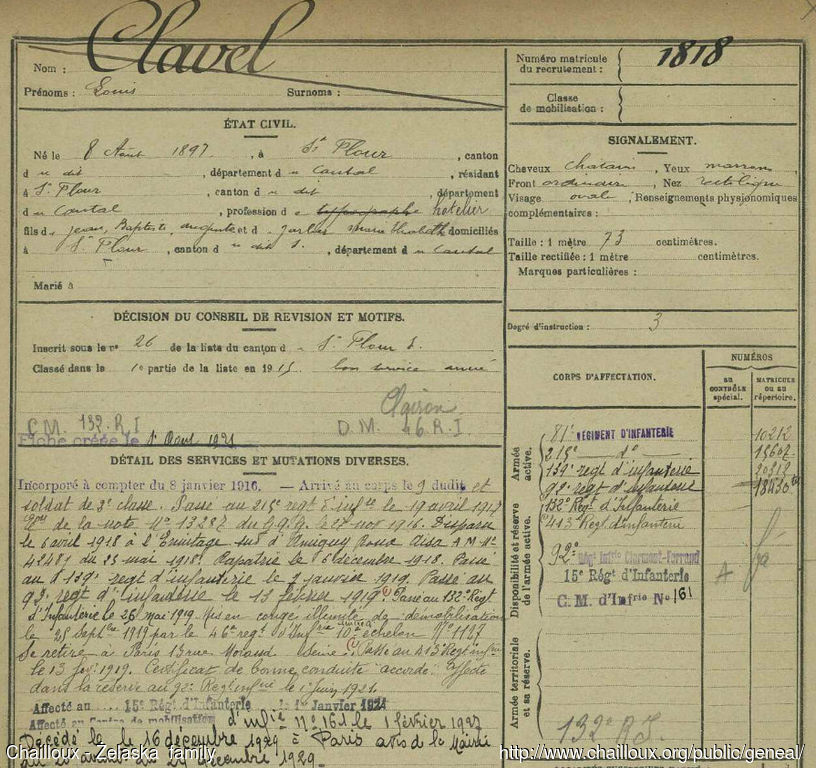 Clavel
Nom :
Prénoms : Louis Surnoms :
Numéro matricule du recrutement : 1818
Classe de mobilisation :
ÉTAT CIVIL.
Né le 8 Août 1897, à St Flour, canton
d u dit, département d u Cantal, résidant
à St Flour, canton d u dit, département
d u Cantal, profession d hotelier
fils d Jean, Baptiste, Auguste et d domiciliés
à St Flour, canton d u dit S., département d u Cantal
Marié à
SIGNALEMENT.
Cheveux chatain, Yeux marrons
Front ordinaire, Nez rectiligne
Visage ovale, Renseignements physionomiques
complémentaires :
Taille : 1 mètre 73 centimètres.
Taille rectifiée : 1 mètre centimètres.
Marques particulières :
Degré d'instruction : 3
DÉCISION DU CONSEIL DE REVISION ET MOTIFS.
Inscrit sous le no 26 de la liste du canton d St Flour S.
Classé dans le 1e partie de la liste en 1915 bon service armé
Clairon
C.M. 132. R.I D.M. 46. R.I
Fiche créée le 1 Aout 1921
CORPS D'AFFECTATION.
NUMÉROS
AU CONTRÔLE spécial.
MATRICULE ou au répertoire.
Armée active.
81e RÉGIMENT D'INFANTERIE 10212
215e do
139e regt d'infanterie
92e regt d'infanterie
Disponibilité et réserve de l'armée active.
132e Regt d'Infanterie
413 Regt d'infanterie
92e Régt Infie Clermont-Ferrand
15e Régt d'Infanterie
C. M. d'Infrie No 161
A
Armée territoriale et sa réserve.
132e R.I.
DÉTAIL DES SERVICES ET MUTATIONS DIVERSES.
Incorporé à compter du 8 janvier 1916. — Arrivé au corps le 9 dudit et
soldat de 2e classe. Passé au 215e regt d'infie le 19 avril 1917
de la note No 13282 du G.Q.G. le 27 nov 1916. Disparu
le 6 avril 1918 à l'Ermitage sud d'Amigny Rouy Aisne A.M. No
42481 du 23 mai 1918. Rapatrié le 6 décembre 1918. Passé
au 139e regt d'infanterie le 2 janvier 1919. Passé au
92e regt d'infanterie le 13 février 1919. Passé au 132e Regt
d'Infanterie le 26 mai 1919. Mis en congé illimité de démobilisation
le 25 Septbre 1919 par le 46e regt d'Infrie 10e échelon No 1127
Se retire à Paris 13 rue Morand Seine. Passé au 413 Regt infrie
le 13 fév. 1919. Certificat de bonne conduite "accordé". Affecté
dans la réserve au 92e Regt infrie le 1 juin 1921.
Affecté au 15e Régt d'Infanterie le 1er Janvier 1924
Affecté au Centre de mobilisation d'infie No 161 le 1 février 1927
Décédé le 16 décembre 1929 à Paris avis de la Mairie
décembre 1929.
Chailloux - Zelaska family
http://www.chailloux.org/public/geneal/